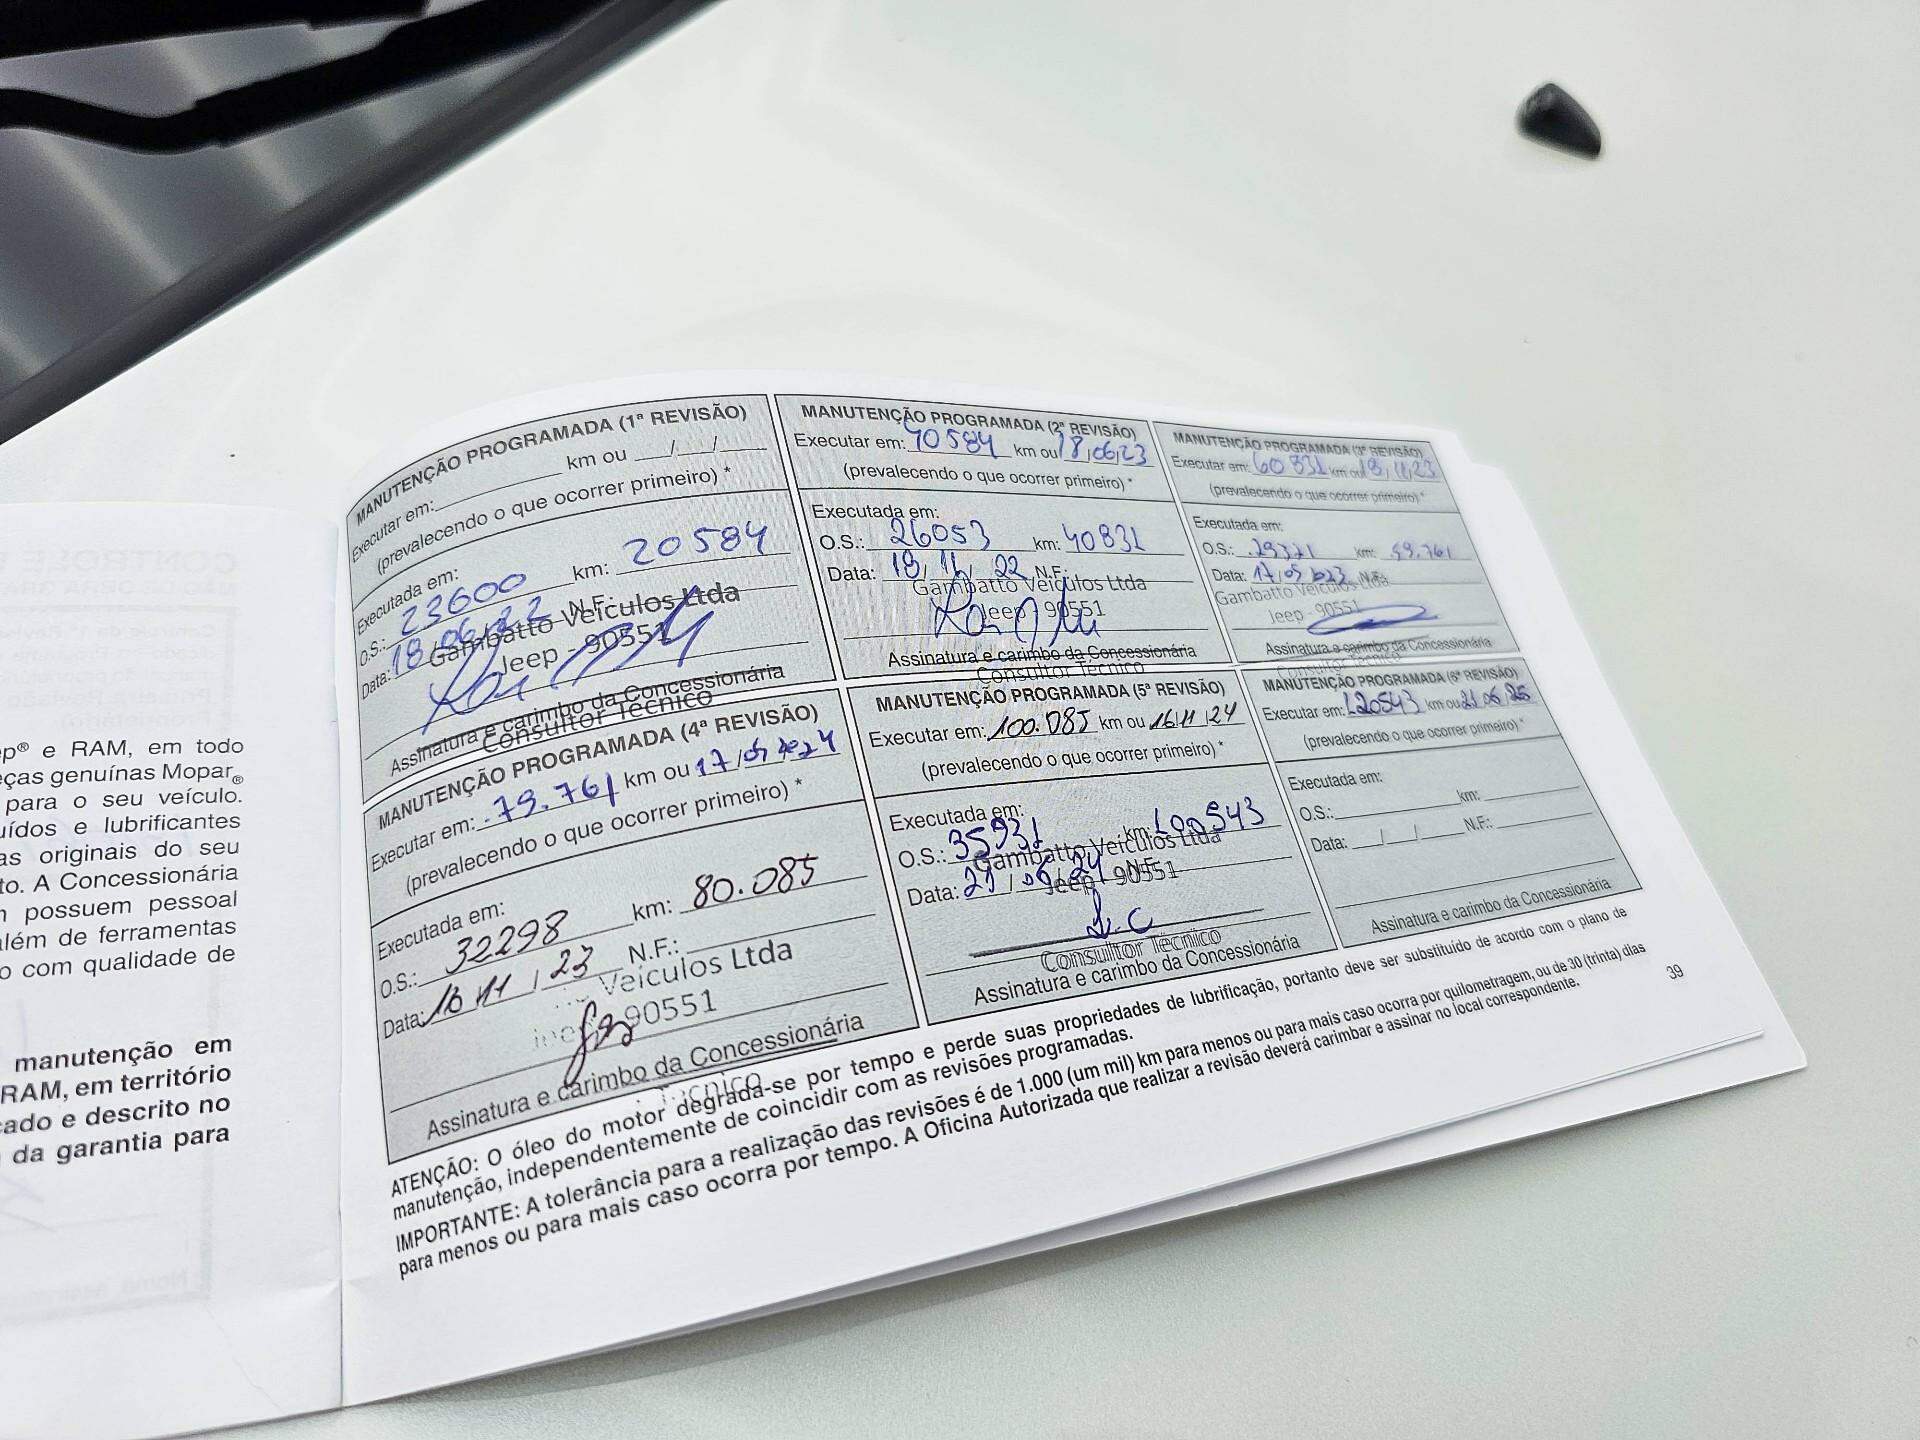 p® e RAM, em todo
eças genuínas Mopar®
para o seu veículo.
uídos e lubrificantes
as originais do seu
to. A Concessionária
possuem pessoal
lém de ferramentas
o com qualidade de
manutenção em
RAM, em território
cado e descrito no
da garantia para
MANUTENÇÃO PROGRAMADA (1ª REVISÃO)
Executar em: km ou / /
(prevalecendo o que ocorrer primeiro) *
Executada em:
O.S.: 23600 km: 20584
Data: 18/06/22 N.F.:
Gambatto Veículos Ltda
Jeep - 90551
Assinatura e carimbo da Concessionária
Consultor Técnico
MANUTENÇÃO PROGRAMADA (2ª REVISÃO)
Executar em: 40584 km ou 18/06/23
(prevalecendo o que ocorrer primeiro) *
Executada em:
O.S.: 26053 km: 40831
Data: 18/11/22 N.F.:
Gambatto Veículos Ltda
Jeep 90551
Assinatura e carimbo da Concessionária
Consultor Técnico
MANUTENÇÃO PROGRAMADA (3ª REVISÃO)
Executar em: 60831 km ou 18/11/23
(prevalecendo o que ocorrer primeiro) *
Executada em:
O.S.: 29321 km: 59.761
Data: 17/05/23 N.F.:
Gambatto Veículos Ltda
Jeep - 90551
Assinatura e carimbo da Concessionária
Consultor Técnico
MANUTENÇÃO PROGRAMADA (4ª REVISÃO)
Executar em: 79.761 km ou 17/05/2024
(prevalecendo o que ocorrer primeiro) *
Executada em:
O.S.: 32298 km: 80.085
Data: 16/11/23 N.F.:
Veículos Ltda
90551
Assinatura e carimbo da Concessionária
Técnico
MANUTENÇÃO PROGRAMADA (5ª REVISÃO)
Executar em: 100.085 km ou 16/11/24
(prevalecendo o que ocorrer primeiro) *
Executada em:
O.S.: 35931 km: 100543
Gambatto Veículos Ltda
Data: 21/06/24 N.F.
Jeep - 90551
Consultor Técnico
Assinatura e carimbo da Concessionária
MANUTENÇÃO PROGRAMADA (6ª REVISÃO)
Executar em: 120543 km ou 21/06/25
(prevalecendo o que ocorrer primeiro) *
Executada em:
O.S.: km:
Data: / / N.F.:
Assinatura e carimbo da Concessionária
ATENÇÃO: O óleo do motor degrada-se por tempo e perde suas propriedades de lubrificação, portanto deve ser substituído de acordo com o plano de
manutenção, independentemente de coincidir com as revisões programadas.
IMPORTANTE: A tolerância para a realização das revisões é de 1.000 (um mil) km para menos ou para mais caso ocorra por quilometragem, ou de 30 (trinta) dias
para menos ou para mais caso ocorra por tempo. A Oficina Autorizada que realizar a revisão deverá carimbar e assinar no local correspondente.
39